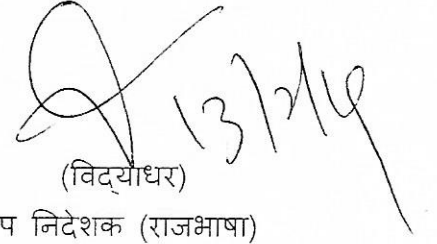 13/2/14
(विद्याधर)
प निदेशक (राजभाषा)